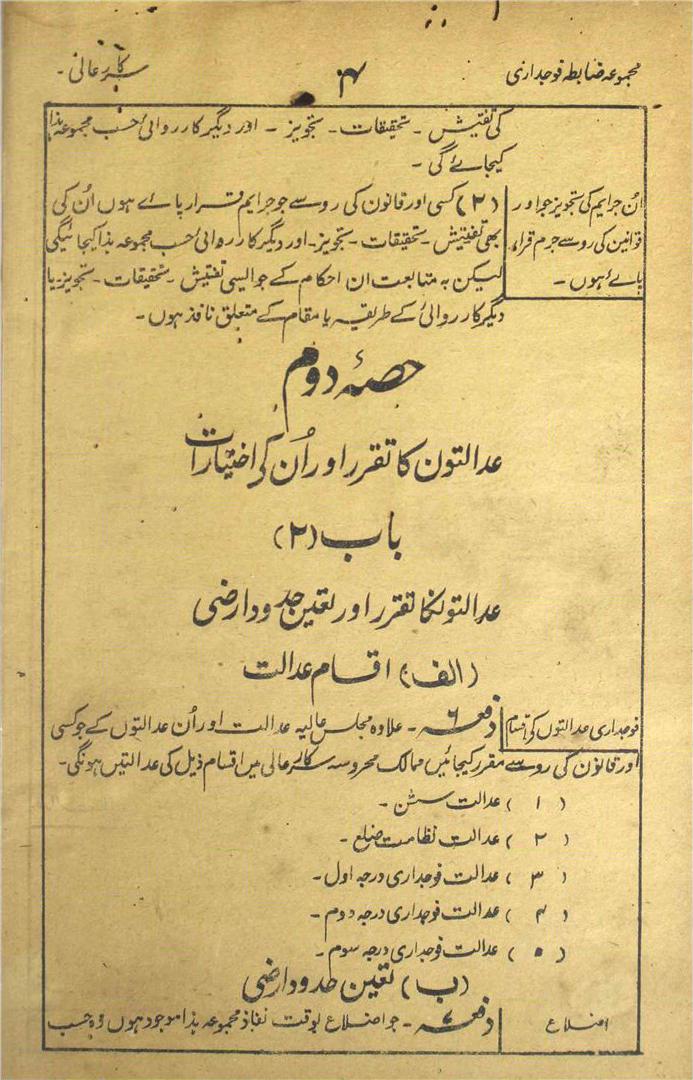 مجموعہ ضابطہ فوجداری
۴
سرکار عالی ۔
کی تفتیش ۔ تحقیقات ۔ تجویز ۔ اور دیگر کارروائی حسب مجموعہ ہذا
کیجاے گی ۔
اُن جرایم کی تجویز جو اور
قوانین کی رو سے جرم قرار
پاے ہوں ۔
(۲) کسی اور قانون کی رو سے جو جرایم قرار پاے ہوں اُن کی
بھی تفتیش ۔ تحقیقات ۔ تجویز ۔ اور دیگر کارروائی حسب مجموعہ ہذا کیجائیگی
لیکن بہ متابعت ان احکام کے جو ایسی تفتیش ۔ تحقیقات ۔ تجویز یا
دیگر کارروائی کے طریقہ یا مقام کے متعلق نافذ ہوں ۔
حصہٴ دوم
عدالتون کا تقرر اور اُن کی اختیارات
باب (۲)
عدالتونکا تقرر اور تعین حدود ارضی
(الف) اقسام عدالت
فوجداری عدالتوں کی اقسام
دفعہ ۶ ۔ علاوہ مجلس عالیہ عدالت اور اُن عدالتوں کے جو کسی
اور قانون کی رو سے مقرر کیجائیں ممالک محروسہ سرکار عالی میں اقسام ذیل کی عدالتیں ہونگی ۔
(۱) عدالت سشن ۔
(۲) عدالت نظامت ضلع ۔
(۳) عدالت فوجداری درجہ اول ۔
(۴) عدالت فوجداری درجہ دوم ۔
(۵) عدالت فوجداری درجہ سوم ۔
(ب) تعین حدود ارضی
اضلاع
دفعہ ۷ ۔ جو اضلاع بوقت نفاذ مجموعہ ہذا موجود ہوں وہ حسب